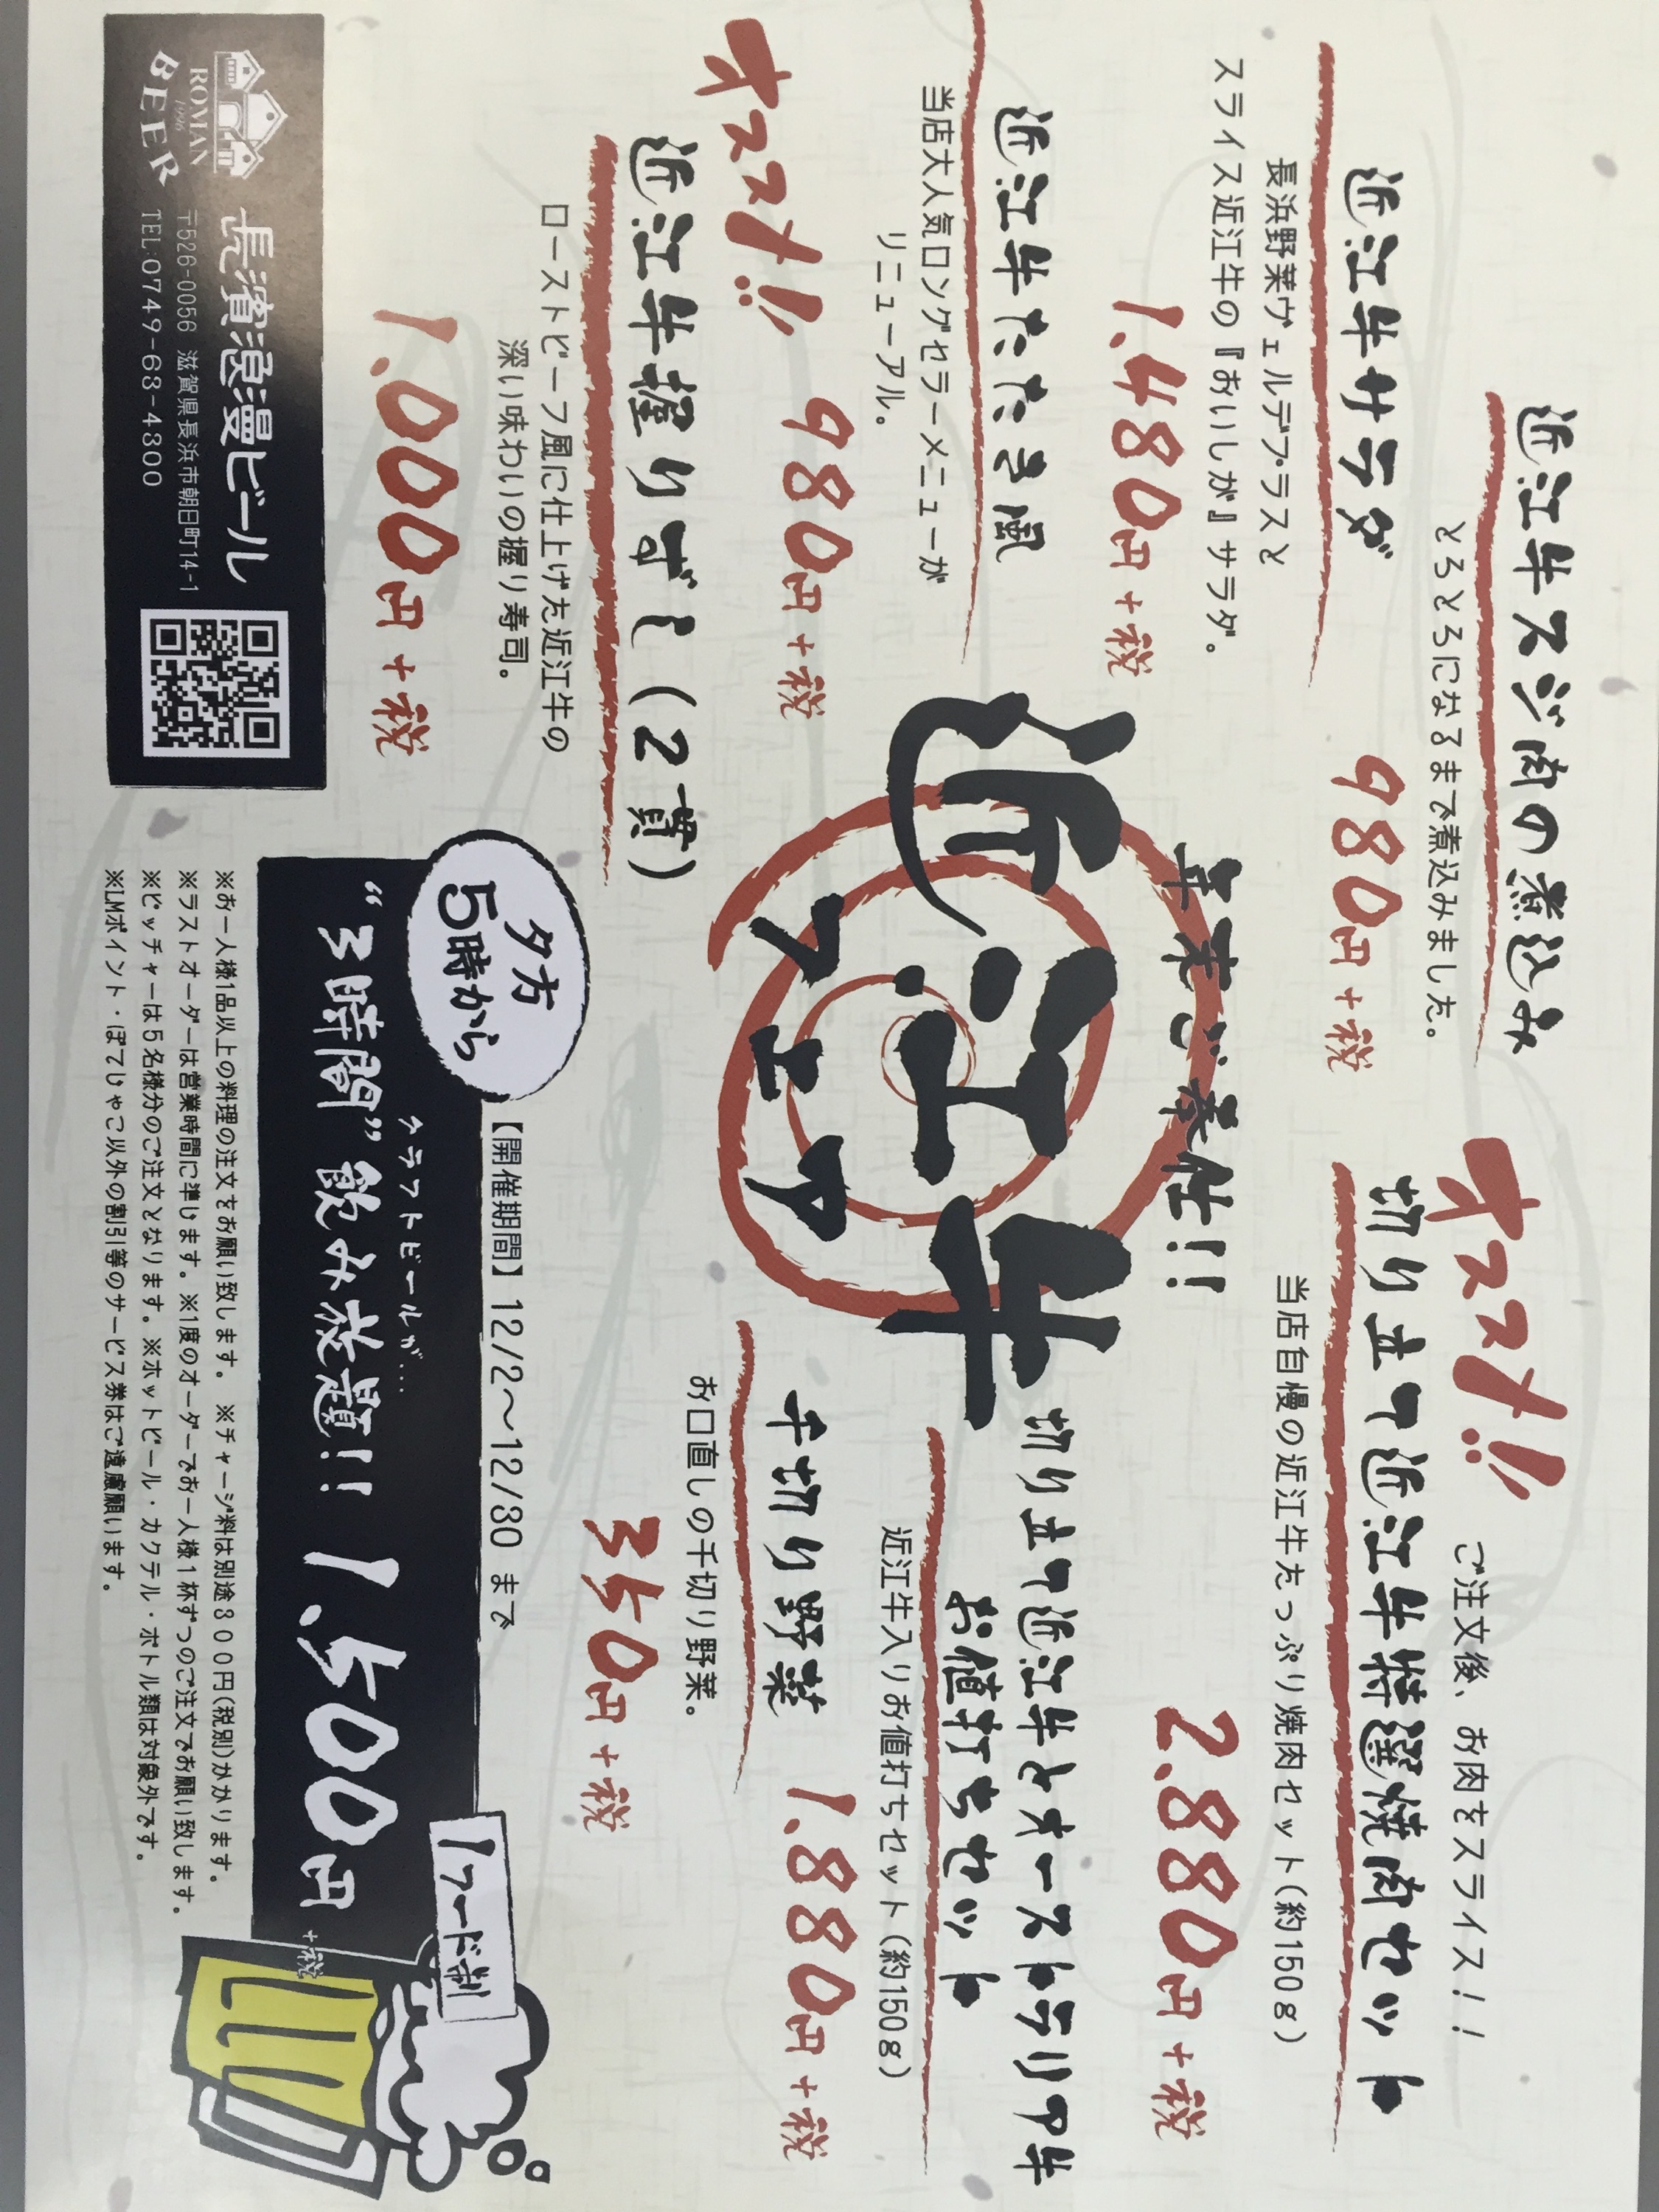 近江牛スジ肉の煮込み
とろとろになるまで煮込みました。
980円+税
近江牛サラダ
長浜野菜ヴェルデプラスと
スライス近江牛の『おいしが』サラダ。
1,480円+税
近江牛たたき風
当店大人気ロングセラーメニューが
リニューアル。
980円+税
オススメ!!
近江牛握りずし(2貫)
ローストビーフ風に仕上げた近江牛の
深い味わいの握り寿司。
1,000円+税
年末ご奉仕!!
近江牛
フェア
オススメ!!
ご注文後、お肉をスライス!!
切り立て近江牛特選焼肉セット
当店自慢の近江牛たっぷり焼肉セット(約150g)
2,880円+税
切り立て近江牛とオーストラリア牛
お値打ちセット
近江牛入りお値打ちセット(約150g)
1,880円+税
千切り野菜
お口直しの千切り野菜。
350円+税
ROMAN
1996
BEER
長濱浪漫ビール
〒526-0056 滋賀県長浜市朝日町14-1
TEL:0749-63-4300
夕方
5時から
【開催期間】12/2〜12/30 まで
クラフトビールが…
"3時間"飲み放題!! 1,500円+税
1フード制
※お一人様1品以上の料理の注文をお願い致します。 ※チャージ料は別途300円(税別)かかります。
※ラストオーダーは営業時間に準じます。※1度のオーダーでお一人様1杯ずつのご注文でお願い致します。
※ピッチャーは5名様分のご注文となります。※ホットビール・カクテル・ボトル類は対象外です。
※LMポイント・ぽてじゃこ以外の割引等のサービス券はご遠慮願います。